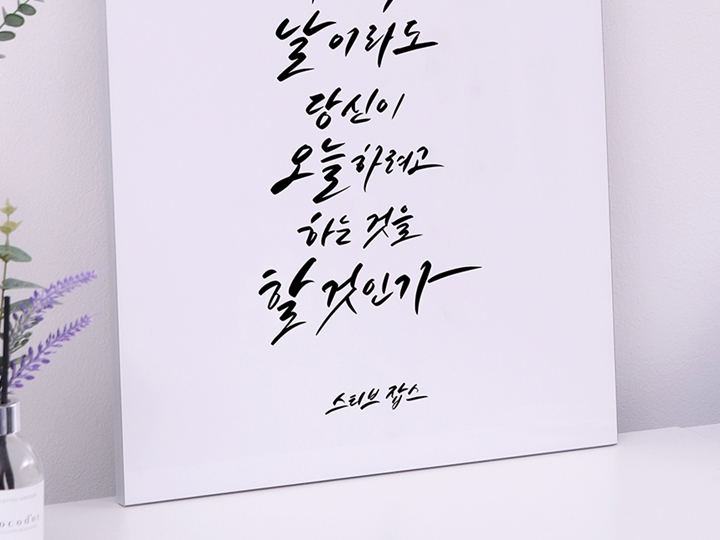 날이라도
당신이
오늘 하려고
하는 것을
할 것인가
스티브 잡스